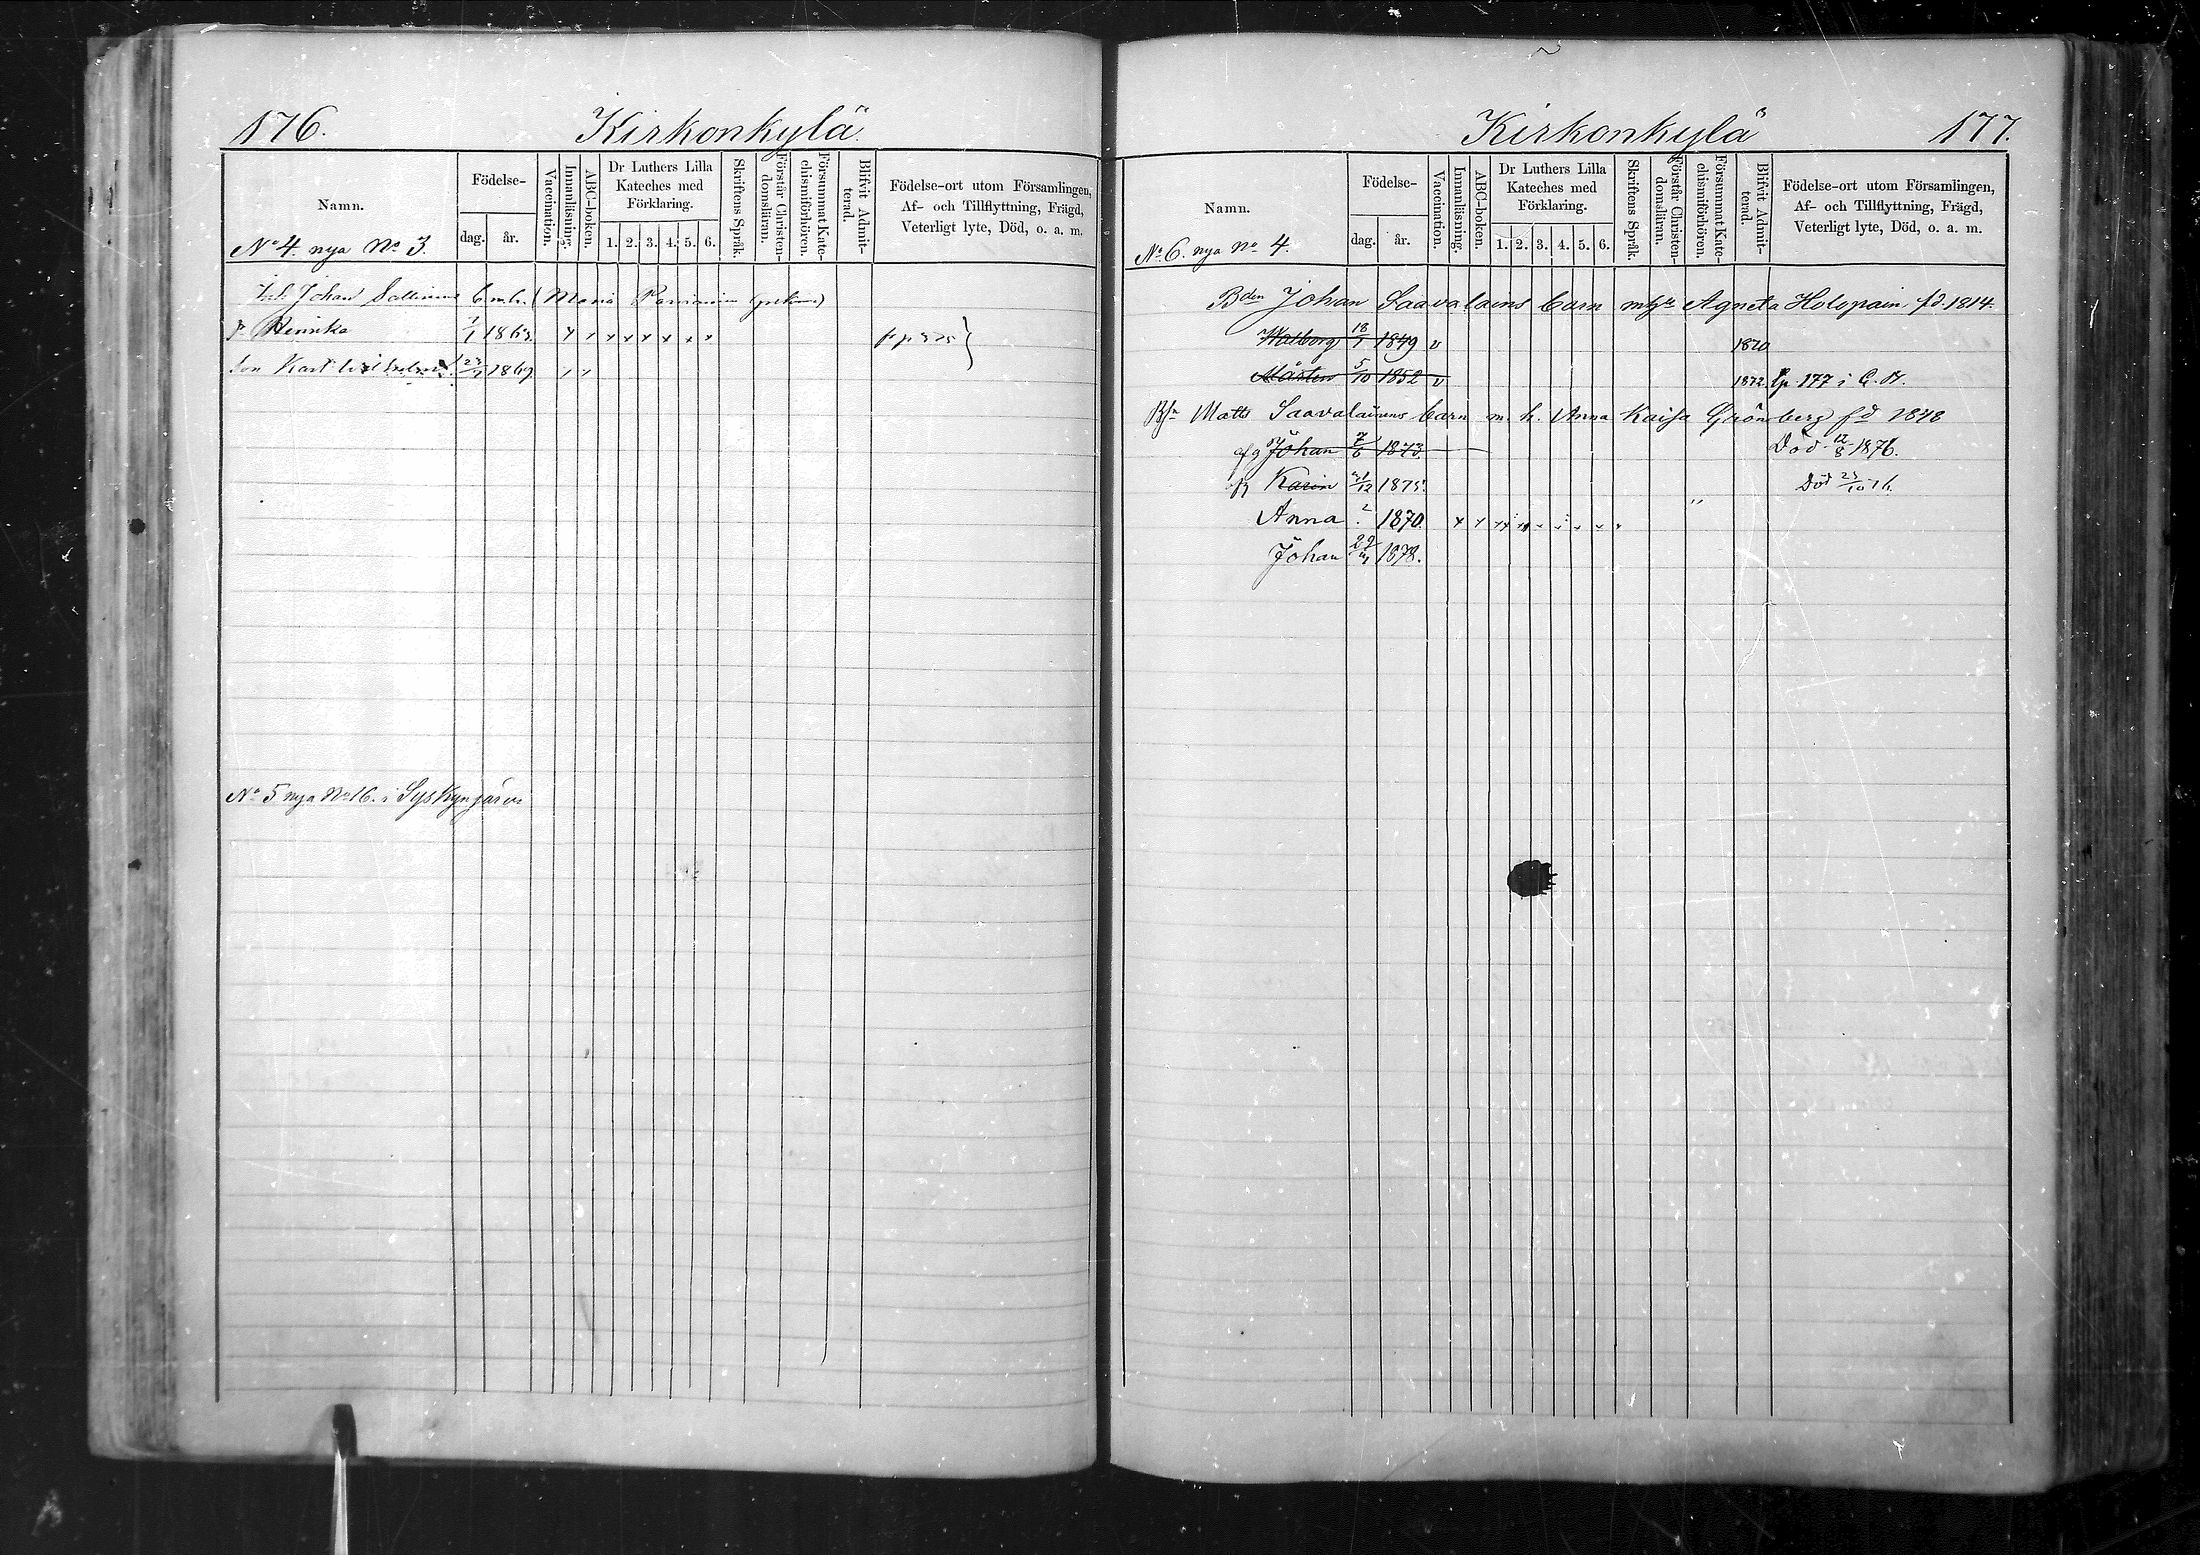 176. Kirkonkylä.
Namn. Födelse- dag. år. Vaccination. Innanläsning. ABC-boken. Dr Luthers Lilla Kateches med Förklaring. 1. 2. 3. 4. 5. 6. Skriftens Språk. Förstår Christen-domsläran. Försummat Kate-chismiförhören. Blifvit Admit-terad. Födelse-ort utom Församlingen, Af- och Tillflyttning, Frägd, Veterligt lyte, Död, o. a. m.
No 4. nya No 3.
Johan Maria
Henrika 1/1 1863.
Son Karl Wilhelm 1869
No 5 nya No 16. i Syskynjärvi
Kirkonkylä 177.
Namn. Födelse- dag. år. Vaccination. Innanläsning. ABC-boken. Dr Luthers Lilla Kateches med Förklaring. 1. 2. 3. 4. 5. 6. Skriftens Språk. Förstår Christen-domsläran. Försummat Kate-chismiförhören. Blifvit Admit-terad. Födelse-ort utom Församlingen, Af- och Tillflyttning, Frägd, Veterligt lyte, Död, o. a. m.
No 6. nya No 4.
Bden Johan Saavalains barn Agneta Holopain fd. 1814.
Walborg 1849 v 1870
Mårten 5/10 1852 v 1872 177 i
Matts Saavalainens barn m. h. Anna Kaisa Grönberg fd 1848
Johan 7/6 1873. Död 12/8 1876.
Karin 1875. Död 76.
Anna 1870.
Johan 1878.